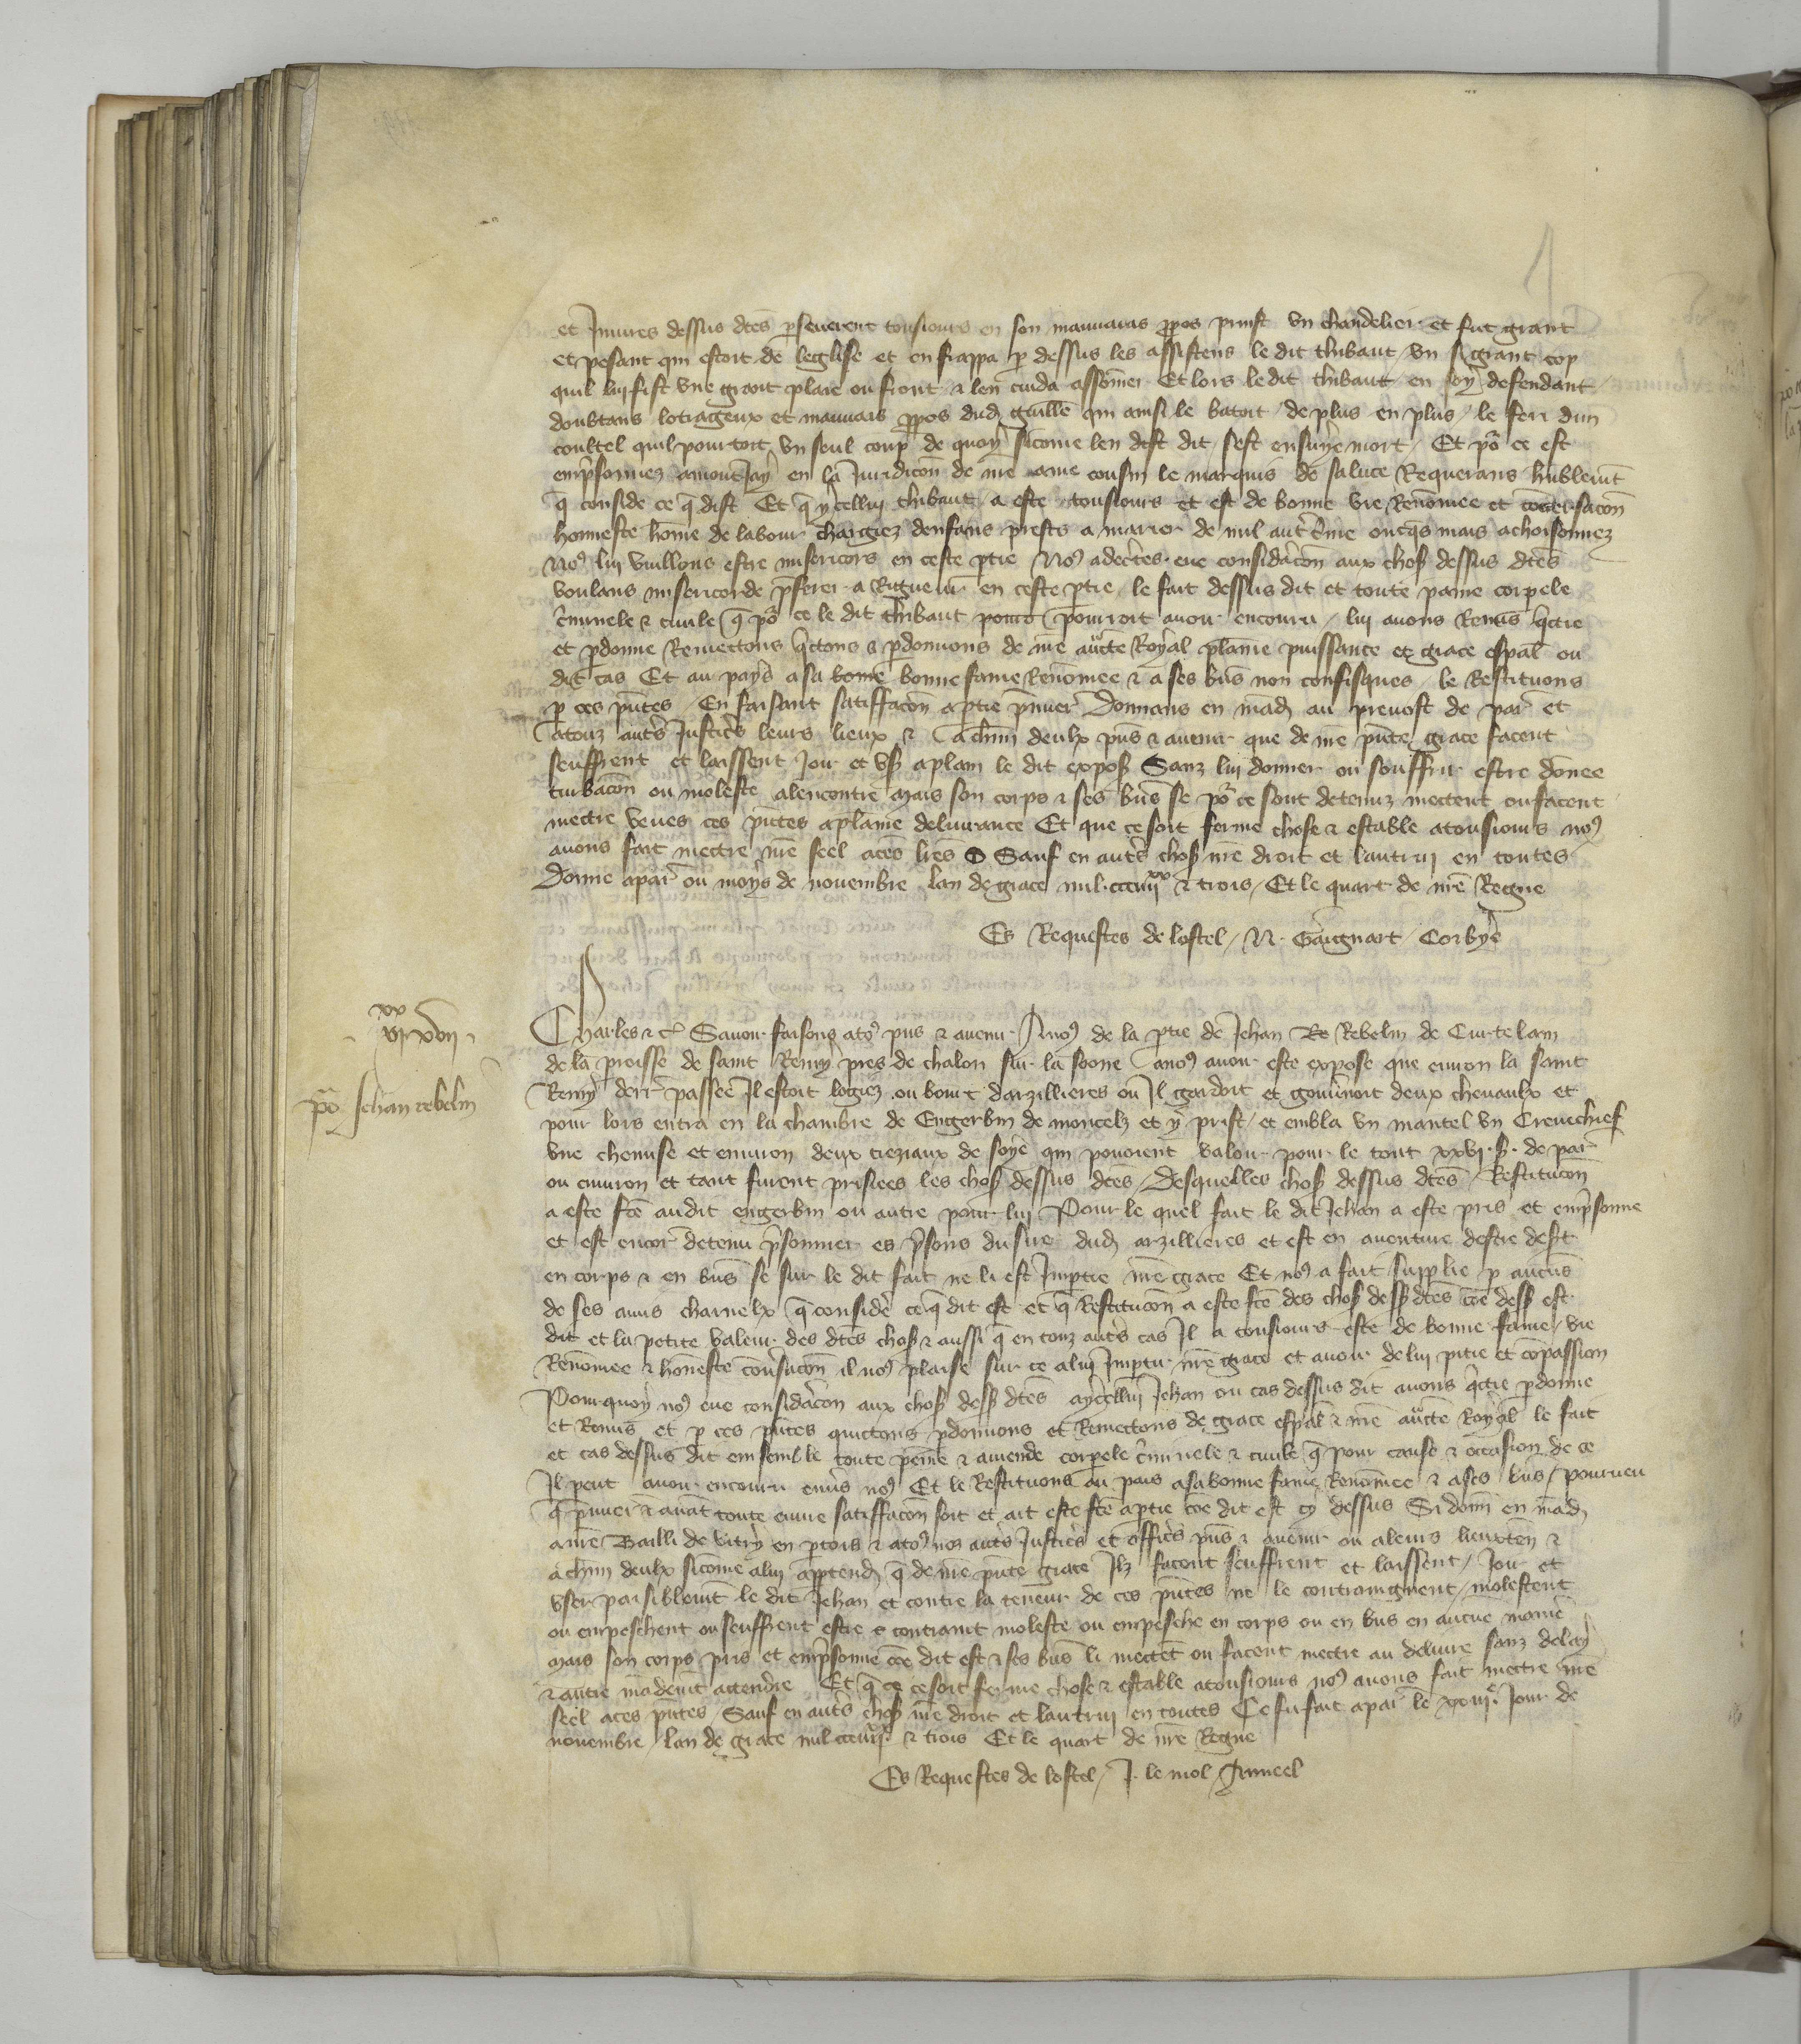 et Iniures dessus dtes perseuerent tousiours en son mauuaiz propos prinst vn chandelier et fut grant
et pesant qui estoit de leglise et en frappa p dessus les assistens le dit thibaut / vn si grant cop
quil lui fist vne grant plaie ou front & len cuida assomer Et lors le dit thibaut en soy defendant
doubtans lotrageux et mauuais ppos dud guille qui ainsi le batoit / de plus en plus / le feri dun
coultel quil pourtoit vn seul coup de quoy sicome len dist dit / sest ensuye mort / Et po ce est
emprisonnez en la Iuridicon de nre ame cousin le marquis de saluce Requerans hublemt
q conside ce q dist Et q ycellui thibaut a este tousiours et est de bonne vie Renomee et
honneste home de labour chargiez denfans prests a marier de nul autre crime onqs mais achoisonnez
No9 lui vuillons estre misericors en ceste ptie No9 adectes eue consideracon aux chos dessus dtes
voulans misericorde pferer a Rigueur en ceste ptie / le fait dessus dit et toute paine corpele
criminele & ciuile q po ce le dit thibaut pourroit auoir encouru / lui auons Remis qctie
et pdonne Remettons qctons & pdonnons de nre aucte Royal plaine puissance et grace espal ou
dit cas Et au pays a sa bonne fame Renomee & a ses bns non confisques / le Restituons
p ces pntes / En faisant satiffacon a ptie pmier Donnans en mad au preuost de par et
atouz auts Iusticrs leurs lieux & achun deulx pns & auenir que de nre pnte grace facent
seuffrent et laissent Ioir et vs aplain le dit expos Sanz lui donner ou souffrir estre donee
turbacon ou moleste alencontre Mais son corps & ses bns se po ce sont detenuz mettent ou facent
mectre veues ces pntes aplaine deliurance Et que ce soit ferme chose & estable atousiours no9
auons fait mectre nre seel a ces lres Sauf en auts chos nre droit et lautrui en toutes
Donne apar ou moys de nouembre lan de grace mil ccc iiij xx & trois / Et le quart de nre Regne
Es Requestes de lostel / N. Gaignart / Corbye
Charles & c Sauoir faisons ato9 pns & auenir / Ano9 de la ptie de Jehan Re Rebelin de Curtelain
de la proisse de saint Remy pres de chalon sur la soone ano9 auoir este expose que enuiron la saint
Remy derr passee Il estoit logiez ou bourt darzillieres ou Il gardoit et gouunoit deux cheuaulx et
pour lors entra en la chambre de Engerbin de moncelz et y prist / et embla vn mantel vn Creuechief
vne chemise et enuiron deux tieziaux de soye qui pouoient valoir pour le tout xxvi. s. de par
ou enuiron et tant furent prisiees les chos dessus dtes / Desquelles chos dessus dtes / Restitucon
a este fte audit engerbin ou autre pour lui Pour le quel fait le dit Jehan a este pris et emprisonne
et est encor detenu prisonnier es prisons du sire dud arzillieres et est en auenture destre dest
en corps & en bns se sur le dit fait ne li est Imptie nre grace Et no9 a fait supplie p aucuns
de ses amis charnelx q consider ce q dit est et q Restitucon a este fte des chos dess dtes coe dess est
dit et la petite valeur des dtes chos & aussi q en touz auts cas Il a tousiours este de bonne fame / vie
Renomee & honeste conusacon il no9 plaise sur ce a lui Imptir nre grace et auoir de lui pitie et copassion
Pourquoy no9 eue consideracon aux chos dess dtes aycellui Jehan ou cas dessus dit auons qctie pdonne
et Remis et p ces pntes quictons pdonnons et Remectons de grace espal & nre aucte Royal le fait
et cas dessus dit emsemble toute peine & amende corpele criminele & ciuile q pour cause & occasion de ce
Il peut auoir encouru enuers no9 Et le Restituons au pais a sa bonne fame Renomee & a ses bns / pourueu
q pmier & auat toute euure satiffacon soit et ait este fte a ptie coe dit est cy dessus Si donn en mad
a nre Bailli de vitry en ptois & ato9 nos auts Iusticrs et officrs pns & auenir ou a leurs lieuxten &
a chun deulx sicome a lui apptend q de nre pnte grace Ilz facent seuffrent et laissent / Ioir et
vser paisiblemt le dit Jehan et contre la teneur de ces pntes ne le contraingnent / molestent
ou empeschent ou seuffrent estre contraint moleste ou empeschie en corps ou en bns en aucue manie
Mais son corps pris et emprisonne coe dit est & ses bns li mectet ou facent mectre au deliure sanz delay
& autre mademt attendre Et q ce soit ferme chose & estable atousiours no9 auons fait mectre nre
seel a ces pntes / Sauf en auts chos nre droit et lautrui en toutes Ce fu fait apar le xxiije Jour de
nouembre / lan de grace mil ccc iiij xx & trois Et le quart de nre Regne
Es Requestes de lostel / J. le mol / Amreel
po Jehan rebelin